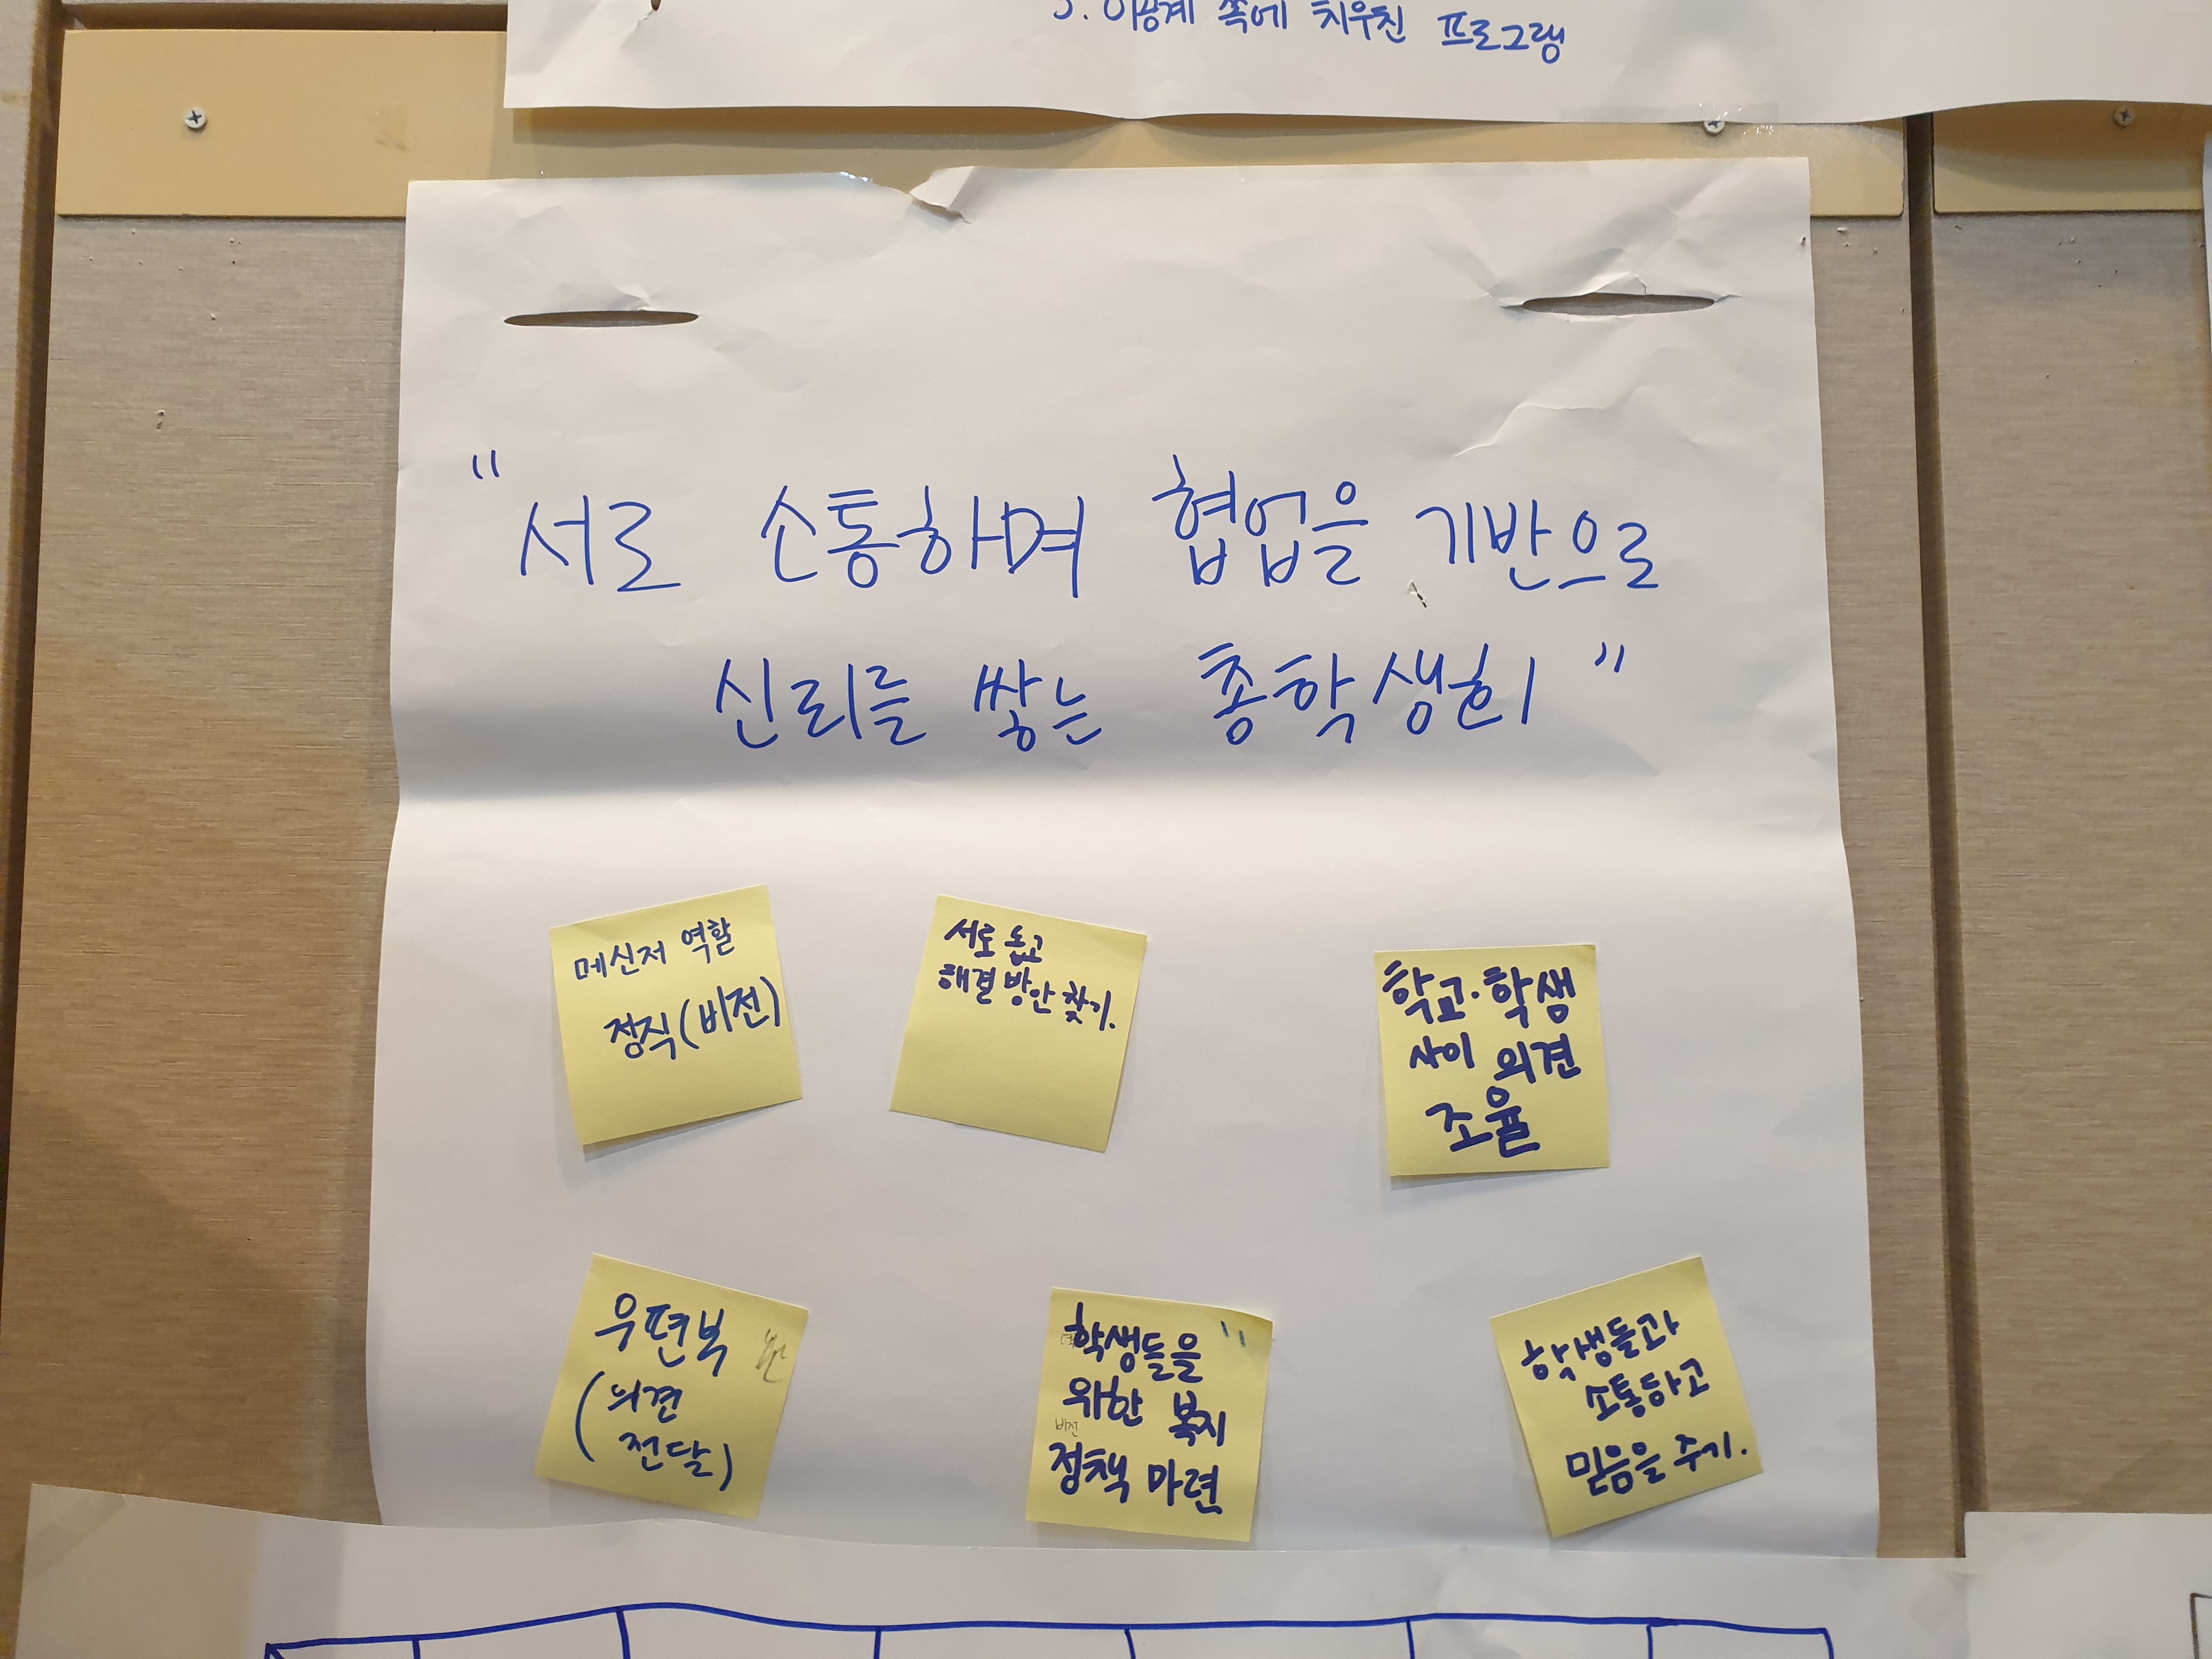 3. 이공계 쪽에 치우친 프로그램
"서로 소통하며 협업을 기반으로
신뢰를 쌓는 총학생회"
메신저 역할
정직(비전)
서로 돕고
해결 방안 찾기.
학교·학생
사이 의견
조율
우편북
(의견
전달)
학생들을
위한 복지
비전
정책 마련
학생들과
소통하고
믿음을 주기.